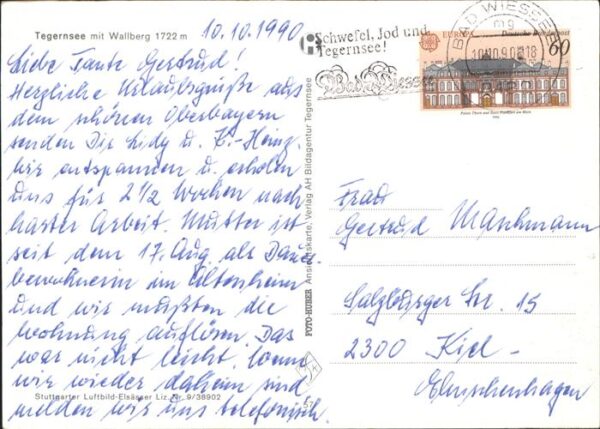 Tegernsee mit Wallberg 1722 m
10.10.1990
Liebe Tante Gertrud!
Herzliche Urlaubsgrüße aus
dem schönen Oberbayern
senden Dir Lidy u. K.-Heinz.
Wir entspannen u. erholen
uns für 2 1/2 Wochen nach
harter Arbeit. Mutter ist
seit dem 17. Aug. als Dauer-
bewohnerin im Altenheim
und wir mußten die
Wohnung auflösen. Das
war nicht leicht. Wenn
wir wieder daheim sind,
melden wir uns telefonisch.
Stuttgarter Luftbild-Elsässer Liz. Nr. 9/38902
FOTO-HUBER Ansichtskarte, Verlag AH Bildagentur Tegernsee
Schwefel, Jod und
Tegernsee!
Bad Wiessee
BAD WIESSEE
10.10.90-18
EUROPA
Deutsche Bundespost
60
1990
Frau
Gertrud Maschmann
Salzburger Str. 15
2300 Kiel -
Elmschenhagen